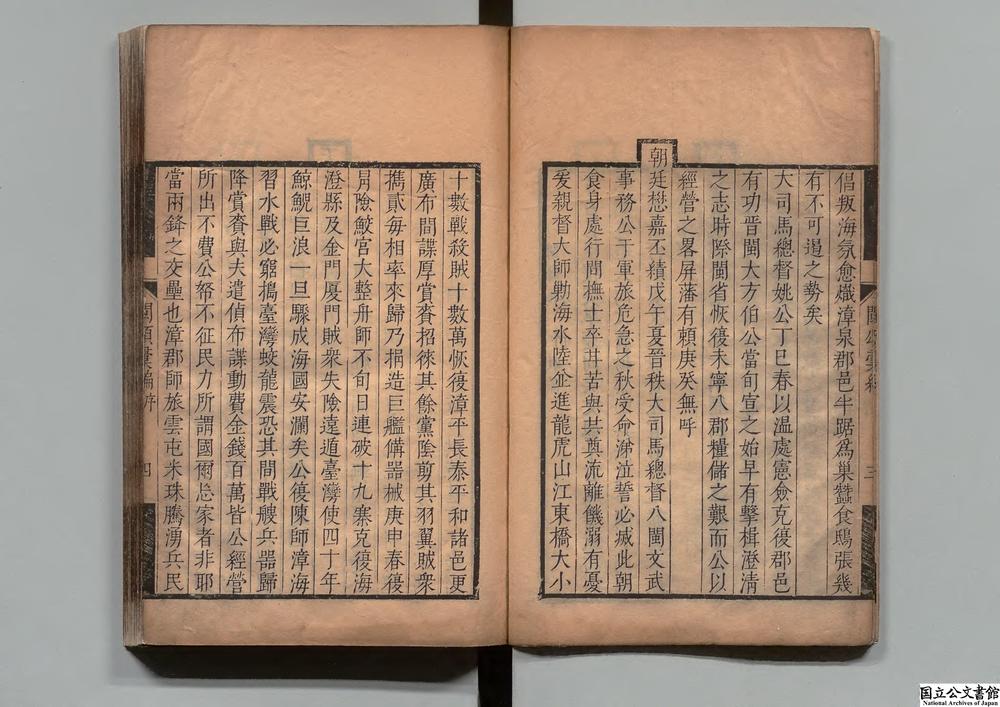 倡叛海氛愈熾漳泉郡邑半踞為巢蠶食鴟張幾
有不可遏之勢矣
大司馬總督姚公丁巳春以温處憲僉克復郡邑
有功晋閩大方伯公當旬宣之始早有擊楫澄清
之志時際閩省恢復未寧八郡糧儲之艱而公以
經營之畧屏藩有賴庚癸無呼
朝廷懋嘉丕績戊午夏晉秩大司馬總督八閩文武
事務公于軍旅危急之秋受命涕泣誓必烕此朝
食身處行間撫士卒井苦與共奠流離饑溺有憂
爰親督大師勦海水陸並進龍虎山江東橋大小
閩頌彙編
三
十數戰殺賊十數萬恢復漳平長泰平和諸邑更
廣布間諜厚賞賚招徠其餘黨陰剪其羽翼賊衆
擕貳每相率來歸乃捐造巨艦備器械庚申春復
冐險鮫宮大整舟師不旬日連破十九寨克復海
澄縣及金門厦門賊衆失險遠遁臺灣使四十年
鯨鯢巨浪一旦驟成海國安瀾矣公復陳師漳海
習水戰必窮搗臺灣蛟龍震恐其間戰艘兵器歸
降賞賚與夫遣偵布諜動費金錢百萬皆公經營
所出不費公帑不征民力所謂國爾忘家者非耶
當兩鋒之交壘也漳郡師旅雲屯米珠騰湧兵民
閩頌彙編 序
四
国立公文書館
National Archives of Japan